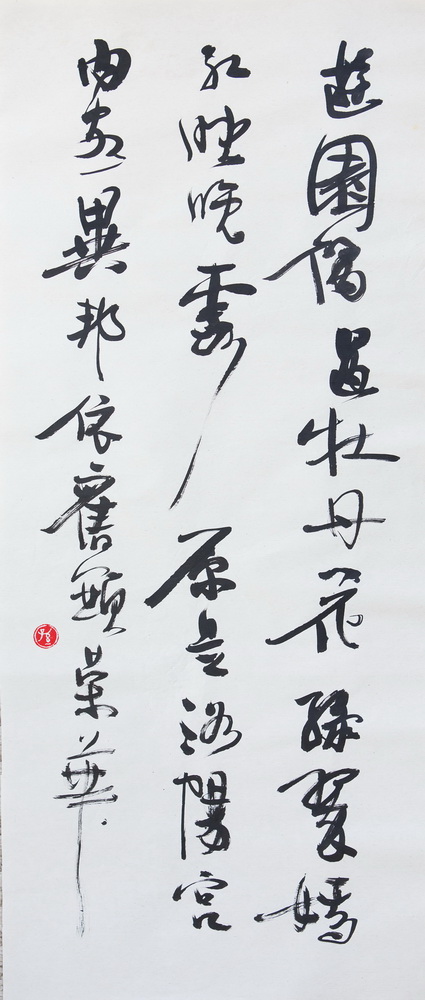 遊園偶遇牡丹花綠翠嫣
紅胜晚霞原是洛陽宮
內客異邦依舊顯榮華